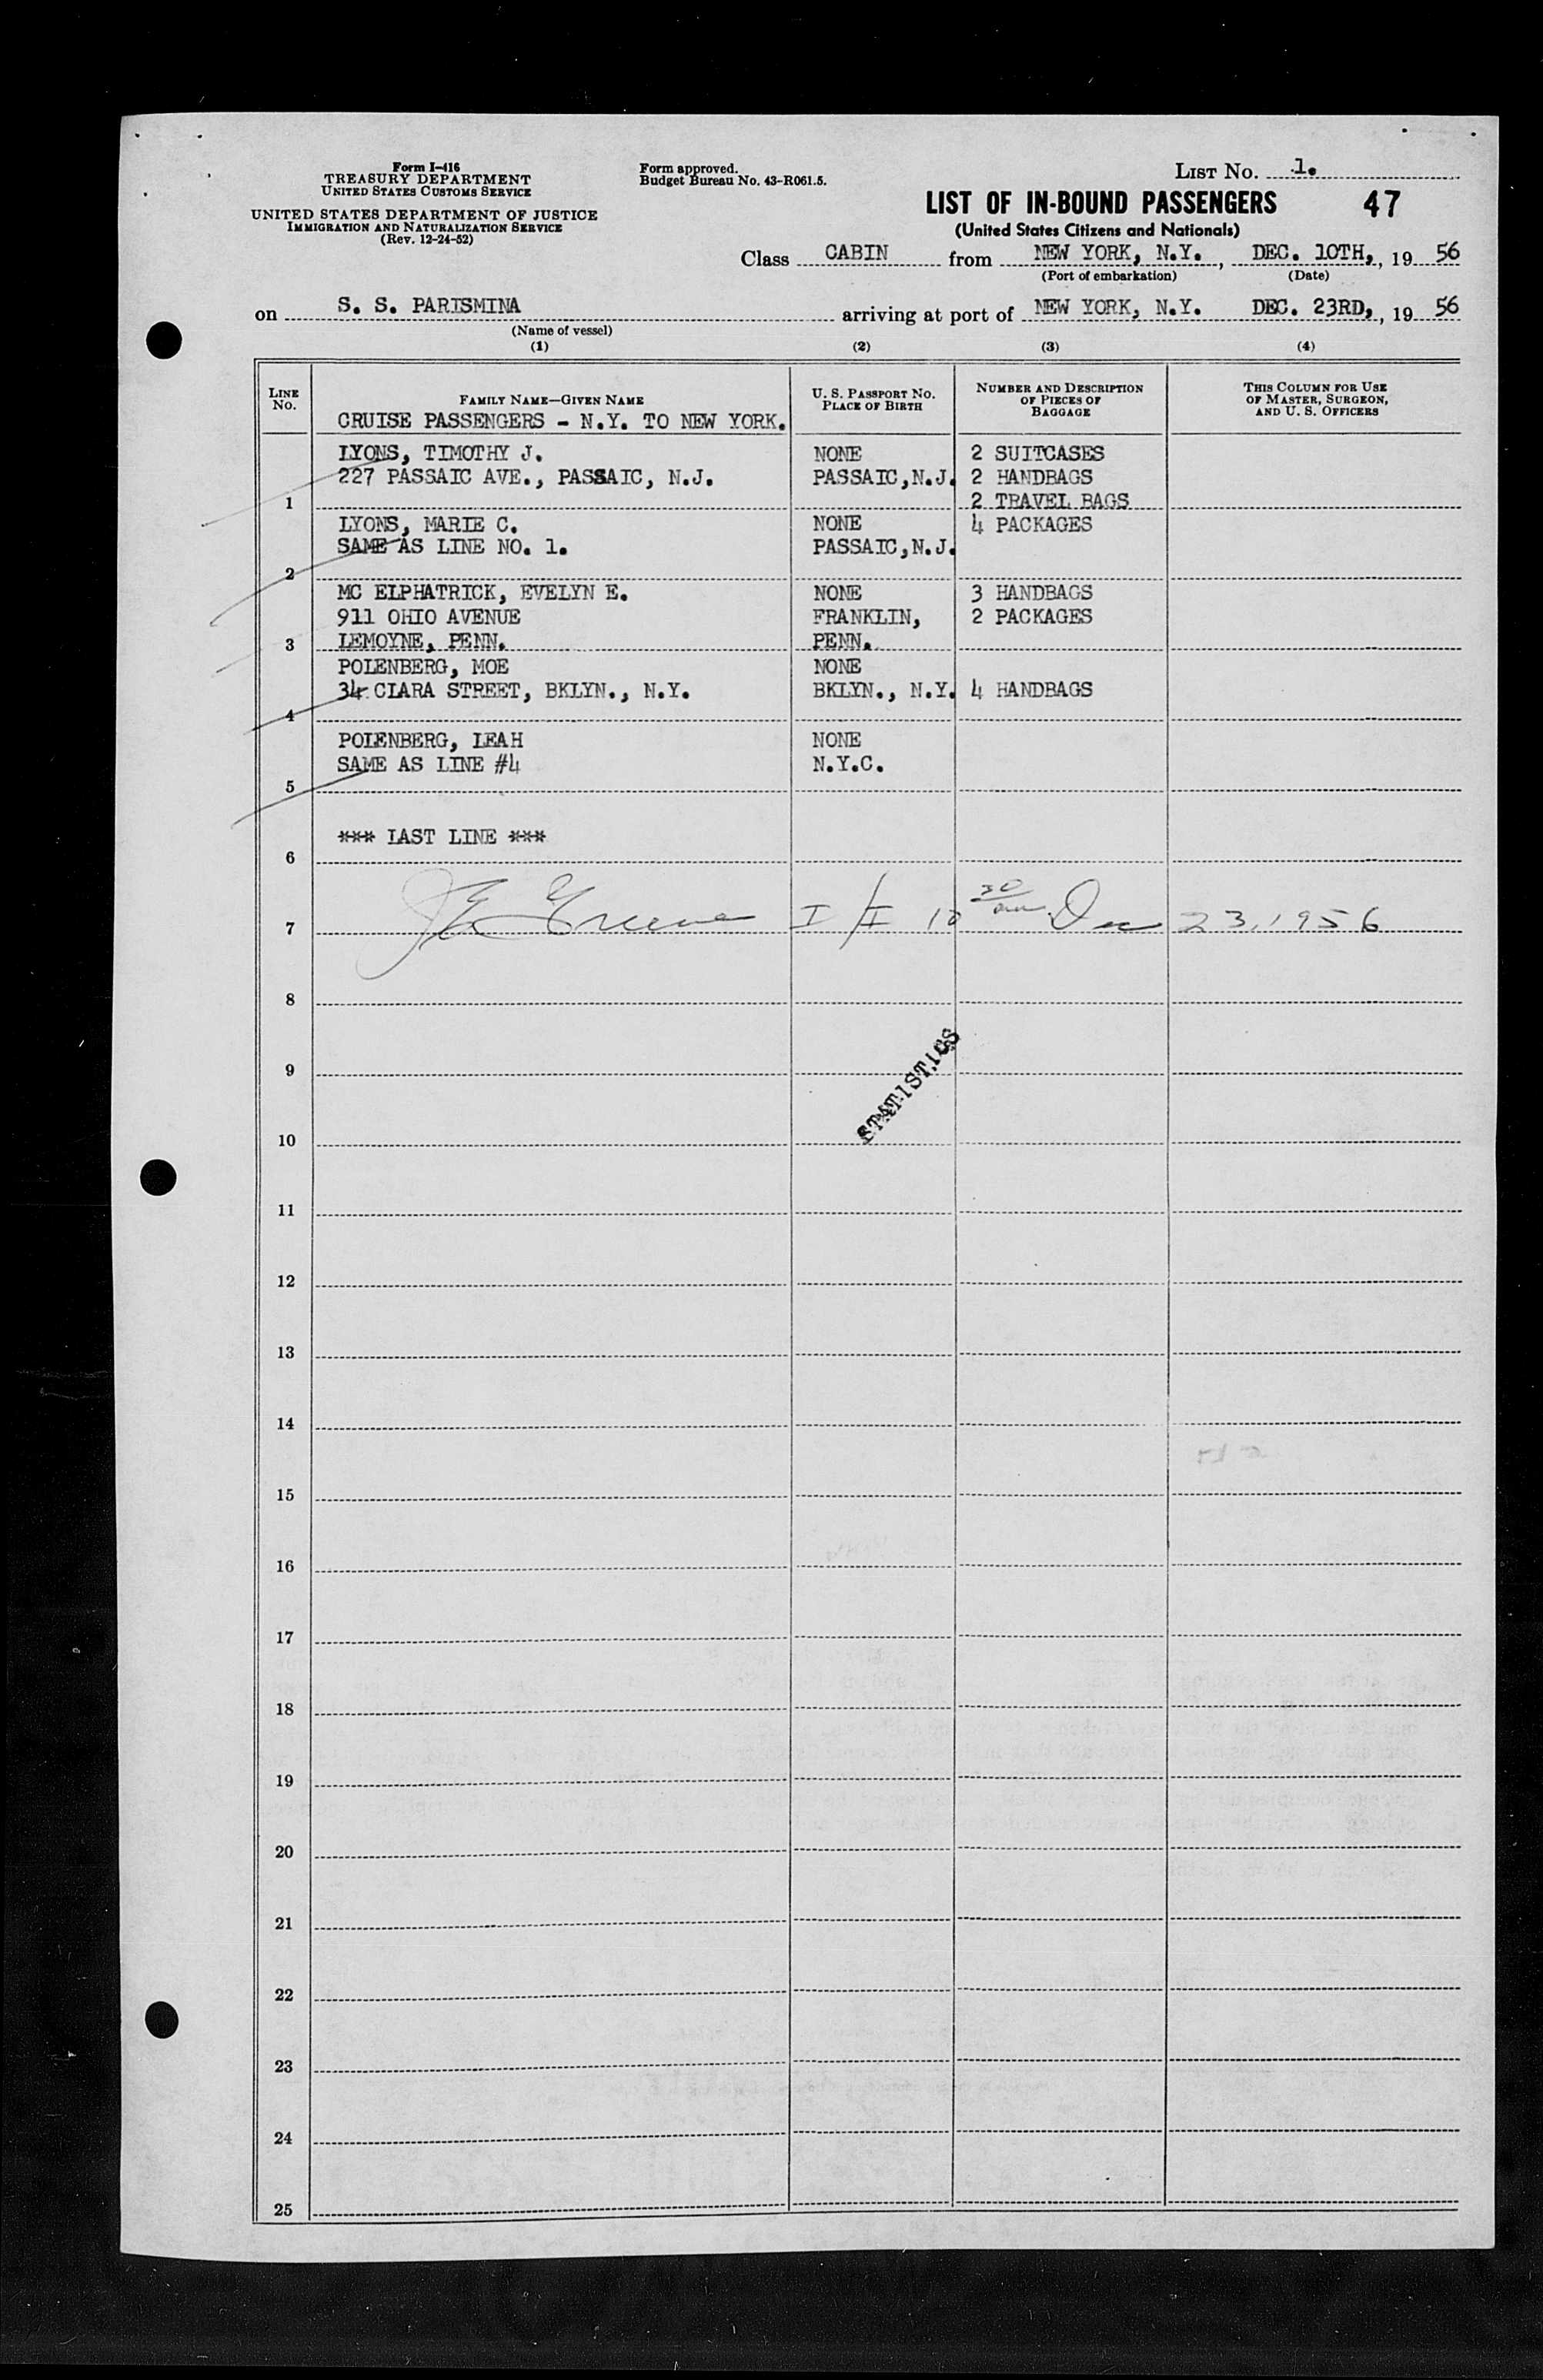 Form I-416
TREASURY DEPARTMENT
UNITED STATES CUSTOMS SERVICE
UNITED STATES DEPARTMENT OF JUSTICE
IMMIGRATION AND NATURALIZATION SERVICE
(Rev. 12-24-52)
Form approved.
Budget Bureau No. 43-R061.5.
LIST No. 1.
LIST OF IN-BOUND PASSENGERS 47
(United States Citizens and Nationals)
Class CABIN from NEW YORK, N.Y., DEC. 10TH,, 19 56
(Port of embarkation) (Date)
on S. S. PARISMINA arriving at port of NEW YORK, N.Y. DEC. 23RD,, 19 56
(Name of vessel)
(1) (2) (3) (4)
LINE No. FAMILY NAME—GIVEN NAME U. S. PASSPORT No. PLACE OF BIRTH NUMBER AND DESCRIPTION OF PIECES OF BAGGAGE THIS COLUMN FOR USE OF MASTER, SURGEON, AND U. S. OFFICERS
CRUISE PASSENGERS - N.Y. TO NEW YORK.
LYONS, TIMOTHY J. NONE 2 SUITCASES
227 PASSAIC AVE., PASSAIC, N.J. PASSAIC,N.J. 2 HANDBAGS
1 2 TRAVEL BAGS
LYONS, MARIE C. NONE 4 PACKAGES
SAME AS LINE NO. 1. PASSAIC,N.J.
2
MC ELPHATRICK, EVELYN E. NONE 3 HANDBAGS
911 OHIO AVENUE FRANKLIN, 2 PACKAGES
3 LEMOYNE, PENN. PENN.
POLENBERG, MOE NONE
34 CLARA STREET, BKLYN., N.Y. BKLYN., N.Y. 4 HANDBAGS
4
POLENBERG, LEAH NONE
SAME AS LINE #4 N.Y.C.
5
*** LAST LINE ***
6
7 Greene I/I 10 30 am Dec 23, 1956
8
STATISTICS
9
10
11
12
13
14
15
16
17
18
19
20
21
22
23
24
25